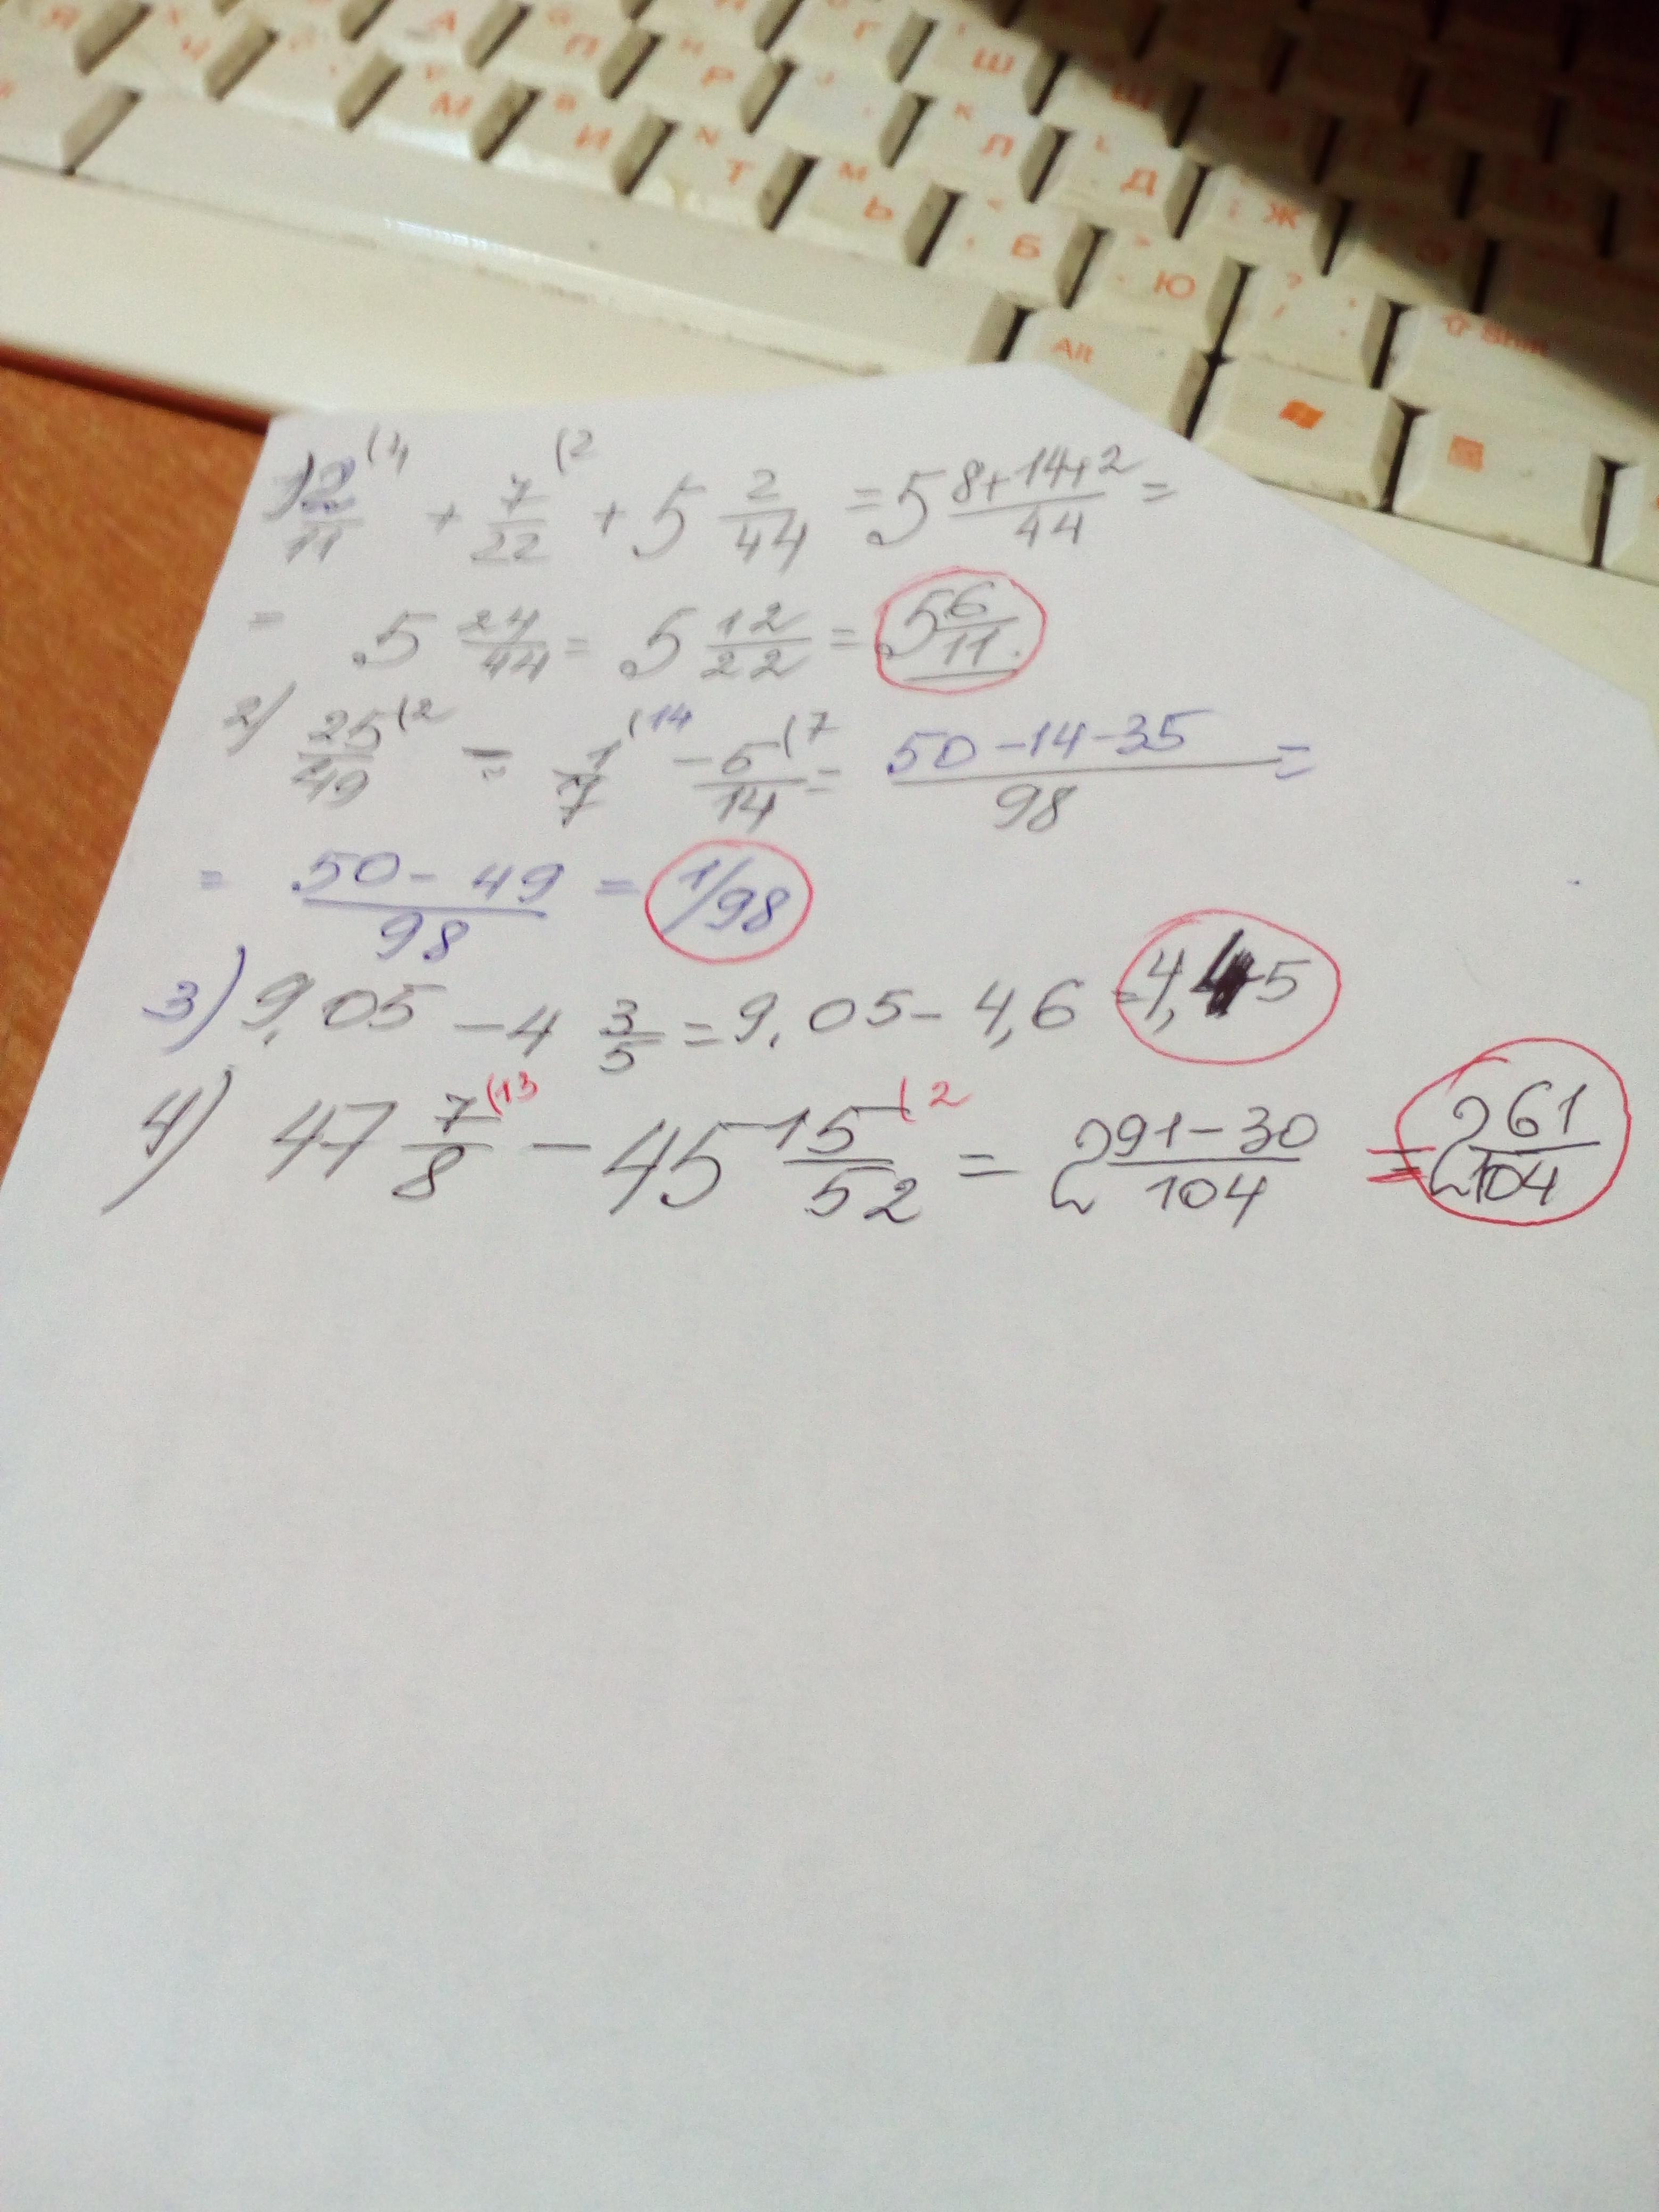 Я Ч А П Р Г Ш Щ
V М B И N Т М Ь < , Б > . Ю К Л L Д ; Ж ? /
Alt ⇧ Shift
1) 2/11 (4 + 7/22 (2 + 5 2/44 = 5 (8+14+2)/44 =
= 5 24/44 = 5 12/22 = 5 6/11.
2) 25/49 (2 - 1/7 (14 - 5/14 (7 = (50-14-35)/98 =
= (50-49)/98 = 1/98
3) 9,05 - 4 3/5 = 9,05 - 4,6 = 4,45
4) 47 7/8 (13 - 45 15/52 (2 = 2 (91-30)/104 = 2 61/104